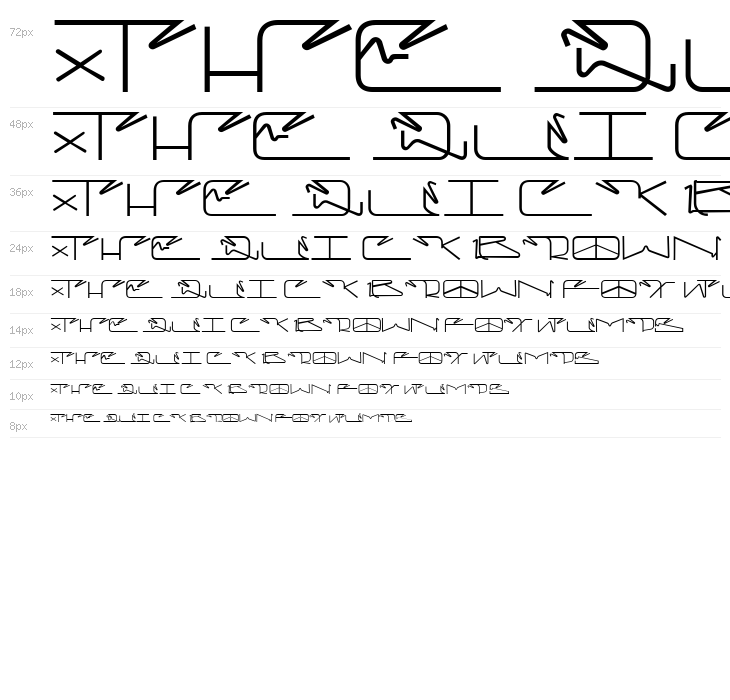 72px THE QU
48px THE QUIC
36px THE QUICK B
24px THE QUICK BROWN
18px THE QUICK BROWN FOX JU
14px THE QUICK BROWN FOX JUMPS
12px THE QUICK BROWN FOX JUMPS
10px THE QUICK BROWN FOX JUMPS
8px THE QUICK BROWN FOX JUMPS